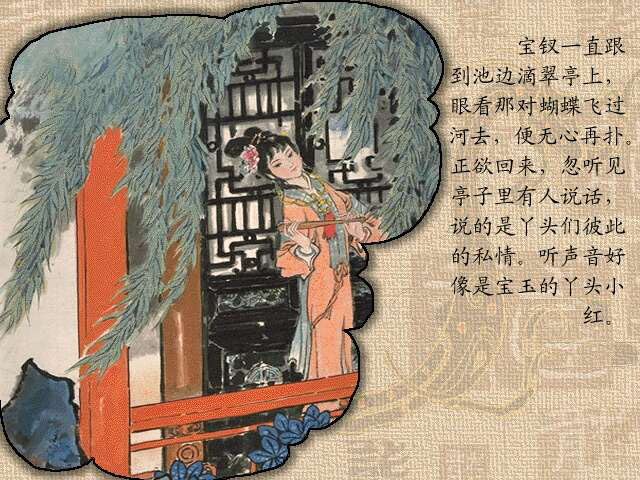 宝钗一直跟
到池边滴翠亭上，
眼看那对蝴蝶飞过
河去，便无心再扑。
正欲回来，忽听见
亭子里有人说话，
说的是丫头们彼此
的私情。听声音好
像是宝玉的丫头小
红。